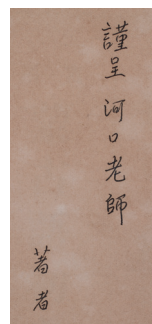 謹呈 河口老師
著者